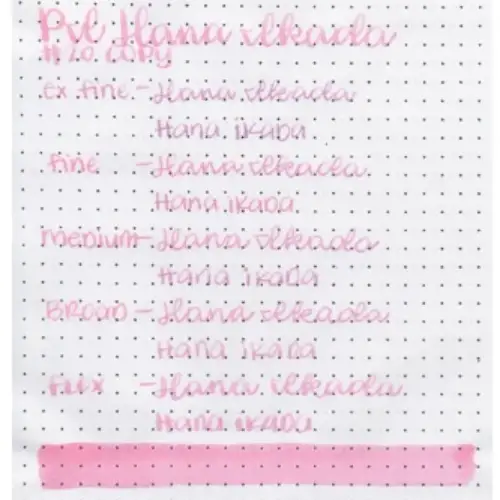 PVL Hana Ikada
# 20 COPY
ex fine - Hana Ikada
Hana ikada
fine - Hana Ikada
Hana ikada
medium - Hana Ikada
Hana ikada
Broad - Hana Ikada
Hana ikada
Flex - Hana Ikada
Hana ikada